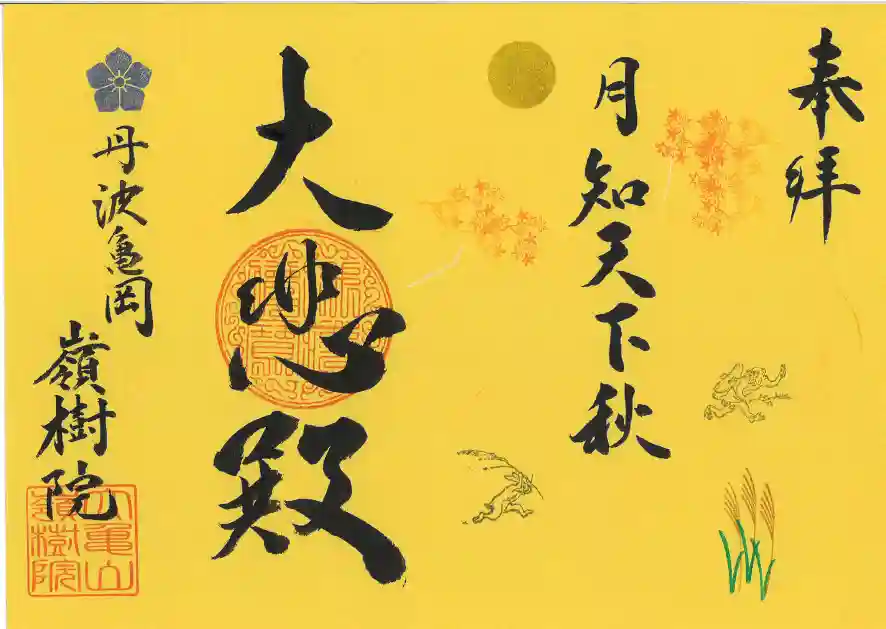 奉拝
月知天下秋
大悲殿
丹波亀岡
嶺樹院
亀山
嶺樹院